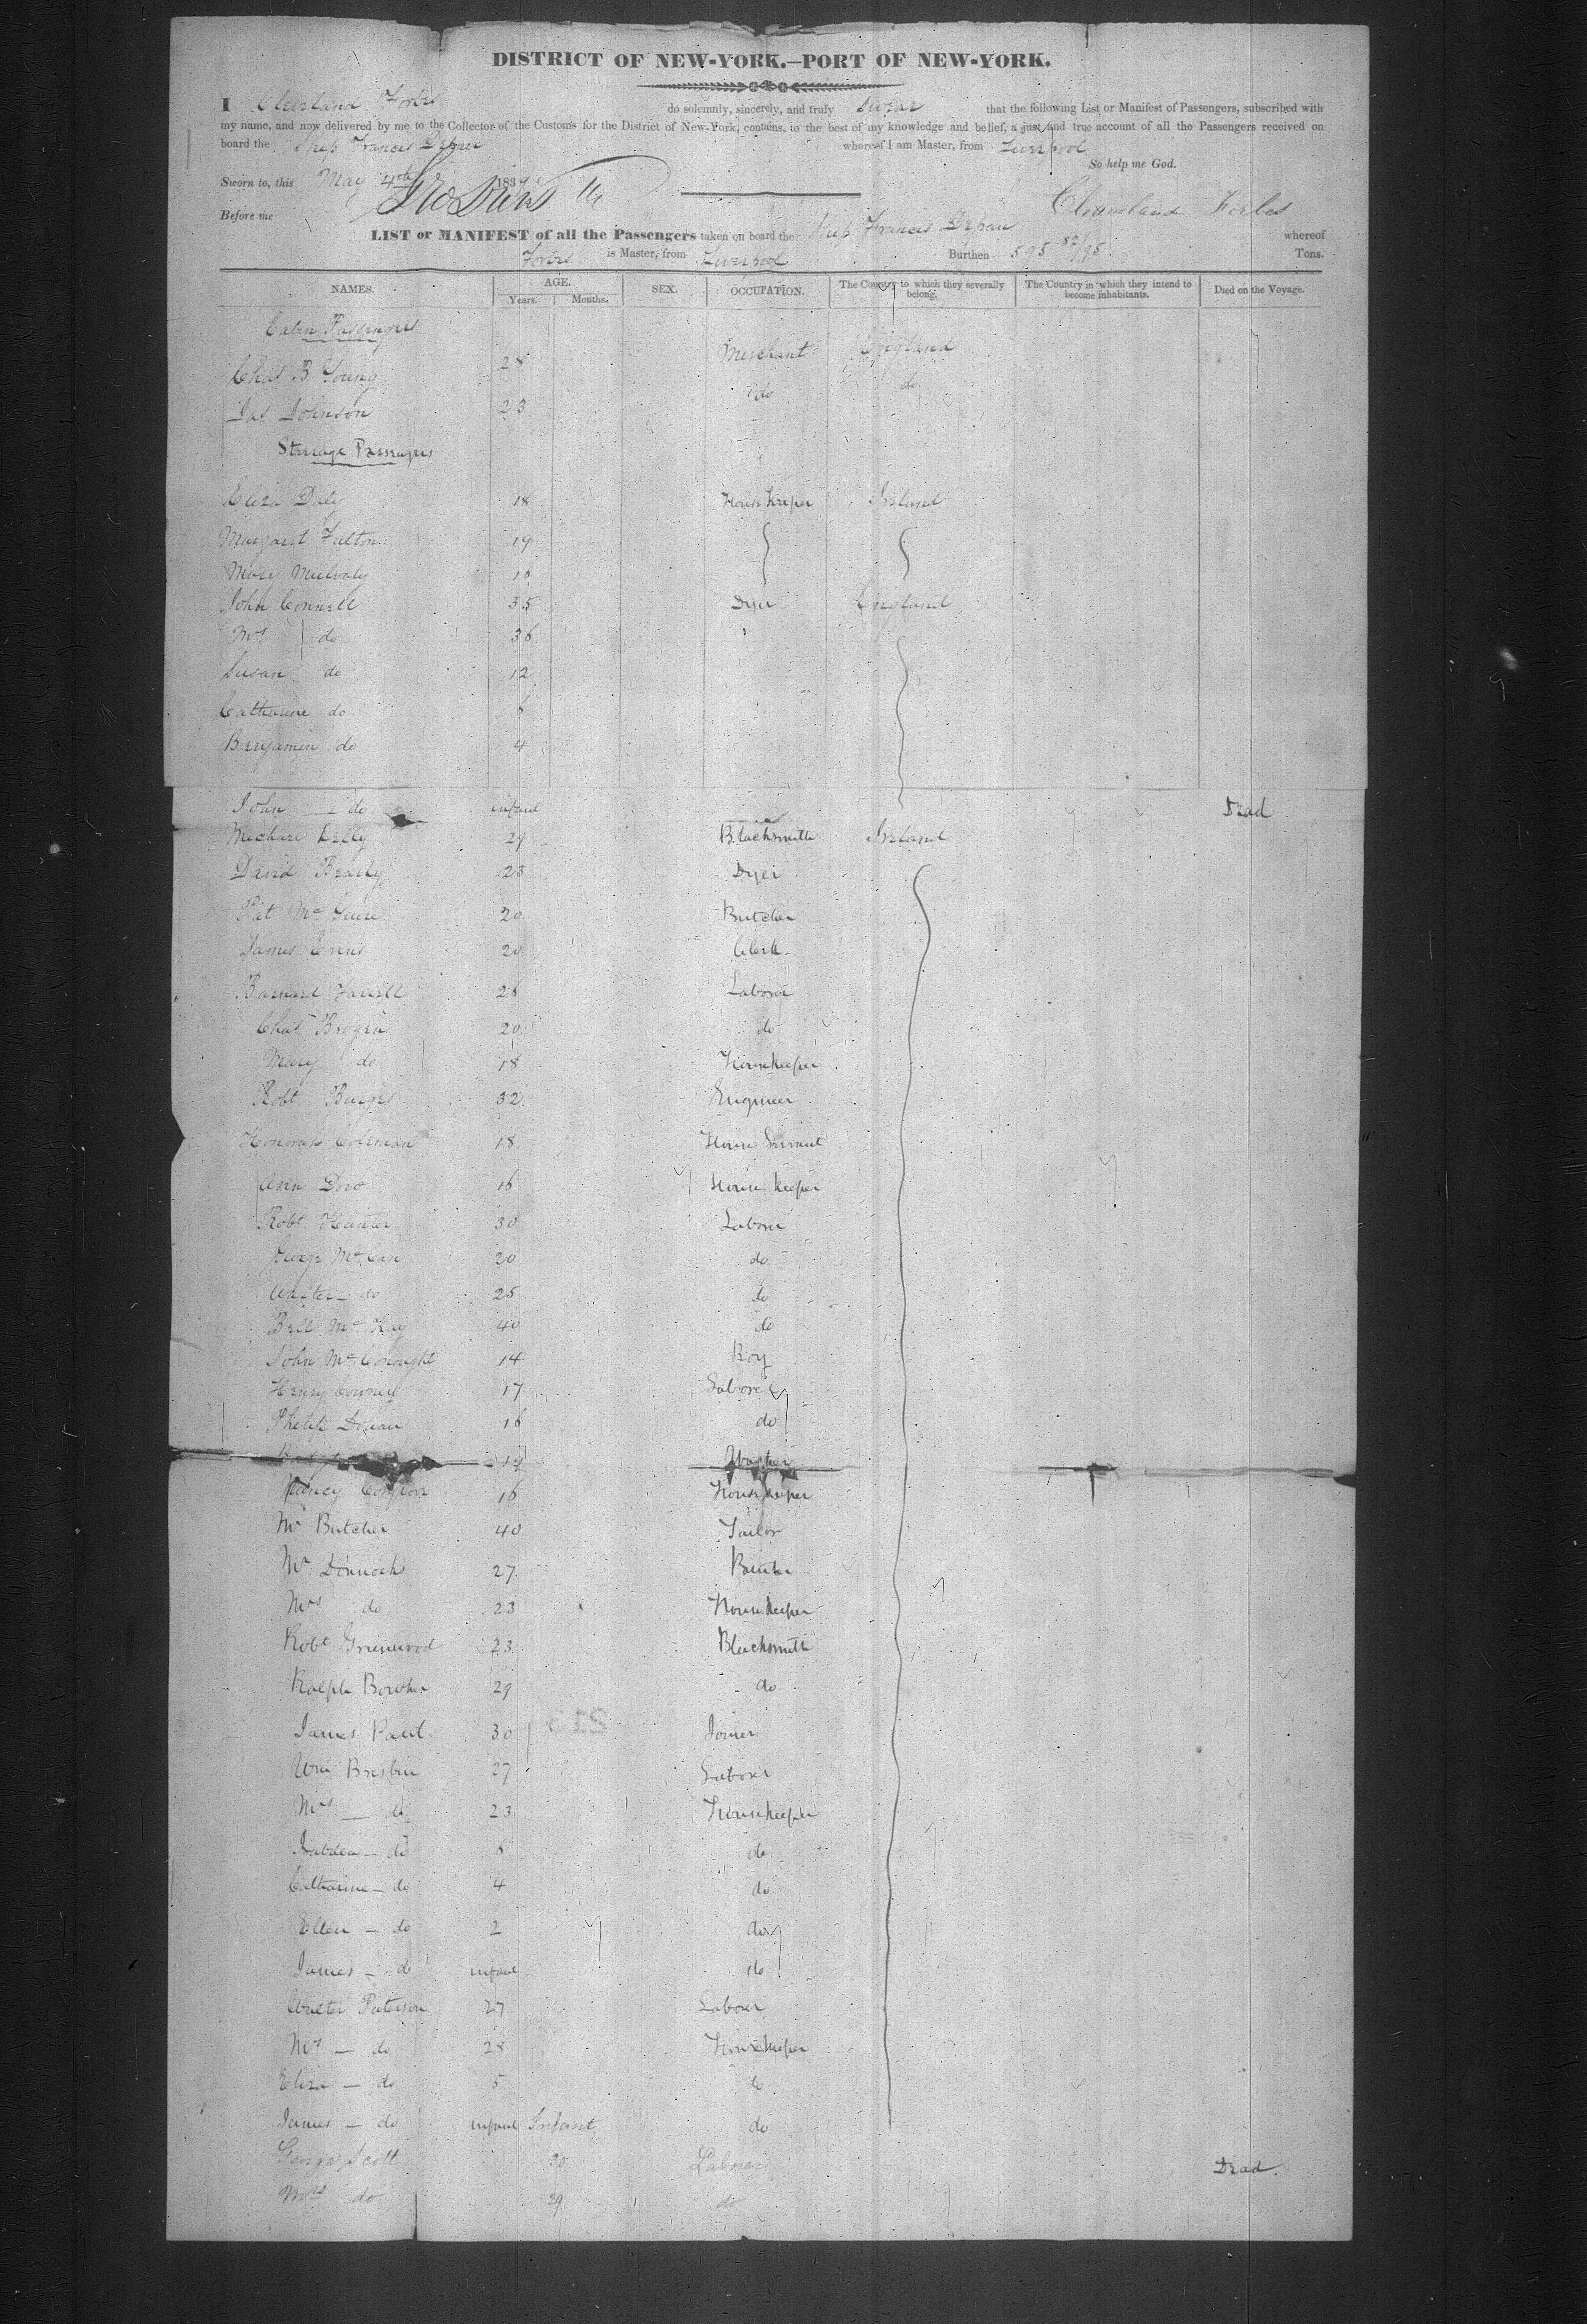 DISTRICT OF NEW-YORK.—PORT OF NEW-YORK.
I Cleveland Forbes do solemnly, sincerely, and truly swear that the following List or Manifest of Passengers, subscribed with
my name, and now delivered by me to the Collector of the Customs for the District of New-York, contains, to the best of my knowledge and belief, a just and true account of all the Passengers received on
board the Ship Francis Depau whereof I am Master, from Liverpool
So help me God.
Sworn to, this May 4th 183
Before me Cleaveland Forbes
LIST or MANIFEST of all the Passengers taken on board the Ship Francis Depau whereof
Forbes is Master, from Liverpool Burthen 595 82/95 Tons.
NAMES. AGE. Years. Months. SEX. OCCUPATION. The Country to which they severally belong. The Country in which they intend to become inhabitants. Died on the Voyage.
Cabin Passengers
Chas B. Young 28 Merchant England
Jas Johnson 23 do do
Steerage Passengers
Eliza Daly 18 House Keeper Ireland
Margaret Fulton 19
Mary 16
John Connell 35 Dyer England
Mrs do 36
Susan do 12
Catharine do 6
Benjamin do 4
John — do infant Dead
Michael Kelly 29 Blacksmith Ireland
David Brady 23 Dyer
Pat Mc 20 Butcher
James Evens 20 Clerk
Barnard Farrell 28 Laborer
Chas Brogin 20 do
Mary do 18 Housekeeper
Robt Burges 32 Engineer
Honorah Coleman 18 House Servant
Ann 16 House keeper
Robt Hunter 30 Laborer
George McCan 20 do
Walter — do 25 do
Bell McKay 40 do
John McConought 14 Boy
Henry 17 Laborer
Philip Dolan 16 do
19
Nancy 16 Housekeeper
Mr Butcher 40 Tailor
Mr Donnochs 27
Mrs do 23 Housekeeper
Robt Greenwood 23 Blacksmith
Ralph Bowker 29 do
James Paul 30 Joiner
Wm Bresbin 27 Laborer
Mrs — do 23 Housekeeper
Isabella — do 6 do
Catharine — do 4 do
Ellen — do 2 do
James — do infant do
Walter Paterson 27 Laborer
Mrs — do 28 Housekeeper
Eliza — do 5 do
James — do infant Infant do
George Scott 30 Laborer Dead.
Mrs do 29 do